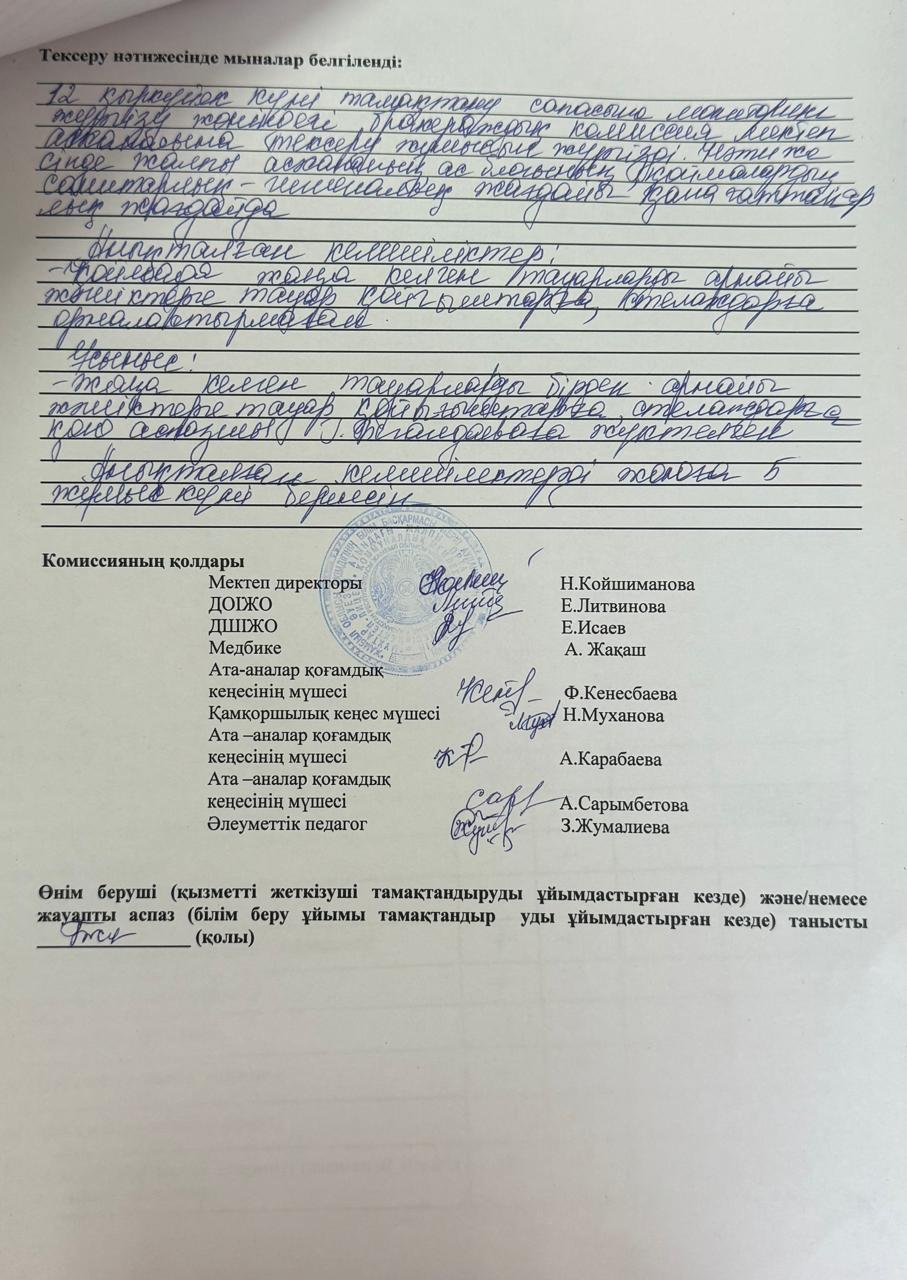 Тексеру нәтижесінде мыналар белгіленді:
12 қыркүйек күні тамақтану сапасына мониторинг
жүргізу жөніндегі бракераждық комиссия мектеп
асханасына тексеру жұмысын жүргізді. Нәтиже
сінде жалпы асхананың ас блогының, қоймалардың
санитарлық - гигеналық жағдайы қанағаттанар
лық жағдайда
Анықталған кемшіліктер:
- Қоймада жаңа келген тауарларды арнайы
жәшіктерге тауар қойғыштарға, стелаждарға
орналастырмаған.
Ұсыныс:
- Жаңа келген тауарларды бірден арнайы
жәшіктерге тауар қойғыштарға, стелаждарға
қою аспазшы Г. жүктелген
Анықталған кемшіліктерді жоюға 5
жұмыс күні берілген
Комиссияның қолдары
Мектеп директоры Н.Койшиманова
ДОІЖО Е.Литвинова
ДШІЖО Е.Исаев
Медбике А. Жақаш
Ата-аналар қоғамдық
кеңесінің мүшесі Ф.Кенесбаева
Қамқоршылық кеңес мүшесі Н.Муханова
Ата –аналар қоғамдық
кеңесінің мүшесі А.Карабаева
Ата –аналар қоғамдық
кеңесінің мүшесі А.Сарымбетова
Әлеуметтік педагог З.Жумалиева
Өнім беруші (қызметті жеткізуші тамақтандыруды ұйымдастырған кезде) және/немесе
жауапты аспаз (білім беру ұйымы тамақтандыр уды ұйымдастырған кезде) танысты
(қолы)